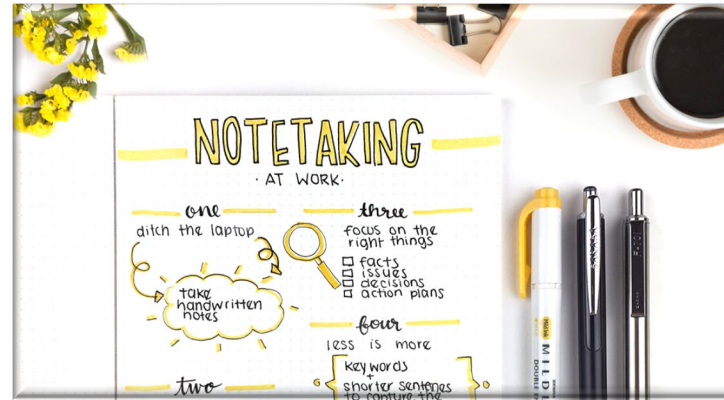 NOTETAKING
· AT WORK ·
one
ditch the laptop
take
handwritten
notes
two
three
focus on the
right things
facts
issues
decisions
action plans
four
less is more
key words
+
shorter sentences
to capture the
MILDL
DOUBLE